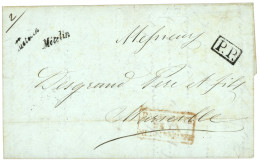 2/
Metelin
Messieurs
P.P.
Desgrand Père et fils
Marseille